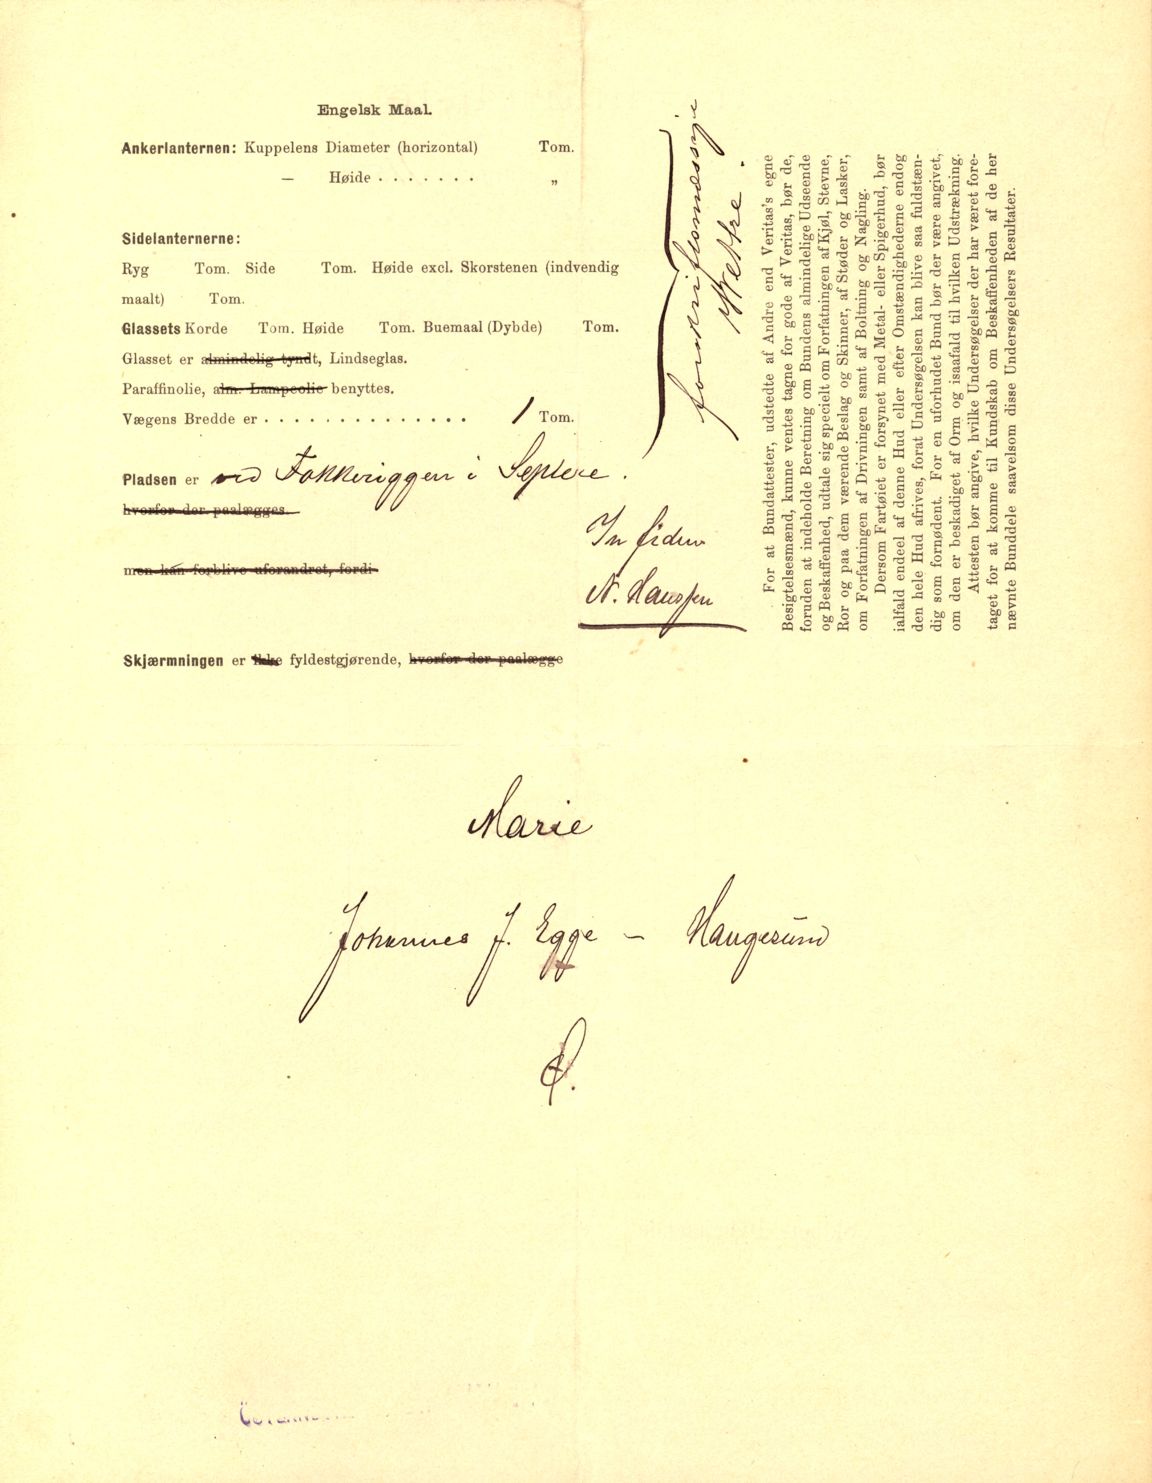 Engelsk Maal.
Ankerlanternen: Kuppelens Diameter (horizontal) Tom.
— Høide . . . . . . . „
Sidelanternerne:
Ryg Tom. Side Tom. Høide excl. Skorstenen (indvendig
maalt) Tom.
Glassets Korde Tom. Høide Tom. Buemaal (Dybde) Tom.
Glasset er almindelig tyndt, Lindseglas.
Paraffinolie, alm. Lampeolie benyttes.
Vægens Bredde er . . . . . . . . . . . . . . 1 Tom.
Pladsen er ved Fokkeriggen i
hvorfor der paalægges.
men kan forblive uforandret, fordi
Skjærmningen er ikke fyldestgjørende, hvorfor der paalægge
forskriftsmæssige
In fidem
N. Hanssen
For at Bundattester, udstedte af Andre end Veritas's egne
Besigtelsesmænd, kunne ventes tagne for gode af Veritas, bør de,
foruden at indeholde Beretning om Bundens almindelige Udseende
og Beskaffenhed, udtale sig specielt om Forfatningen af Kjøl, Stevne,
Ror og paa dem værende Beslag og Skinner, af Støder og Lasker,
om Forfatningen af Drivningen samt af Boltning og Nagling.
Dersom Fartøiet er forsynet med Metal- eller Spigerhud, bør
ialfald endeel af denne Hud eller efter Omstændighederne endog
den hele Hud afrives, forat Undersøgelsen kan blive saa fuldstæn-
dig som fornødent. For en uforhudet Bund bør der være angivet,
om den er beskadiget af Orm og isaafald til hvilken Udstrækning.
Attesten bør angive, hvilke Undersøgelser der har været fore-
taget for at komme til Kundskab om Beskaffenheden af de her
nævnte Bunddele saavelsom disse Undersøgelsers Resultater.
Marie
Johannes J. Egge — Haugesund